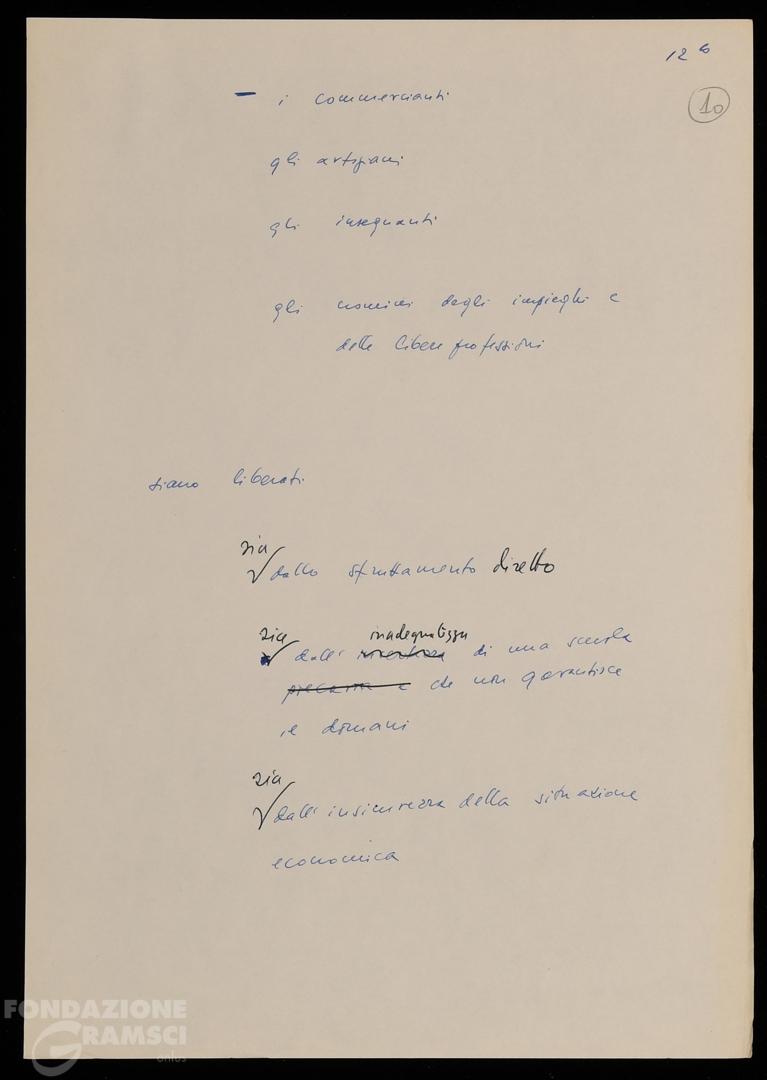 12 b
10
— i commercianti
gli artigiani
gli insegnanti
gli uomini degli impieghi e
delle libere professioni
siano liberati
sia
dallo sfruttamento diretto
sia inadeguatezza
dall' di una scuola
precaria e che non garantisce
il domani
sia
dall'insicurezza della situazione
economica
FONDAZIONE
GRAMSCI
onlus